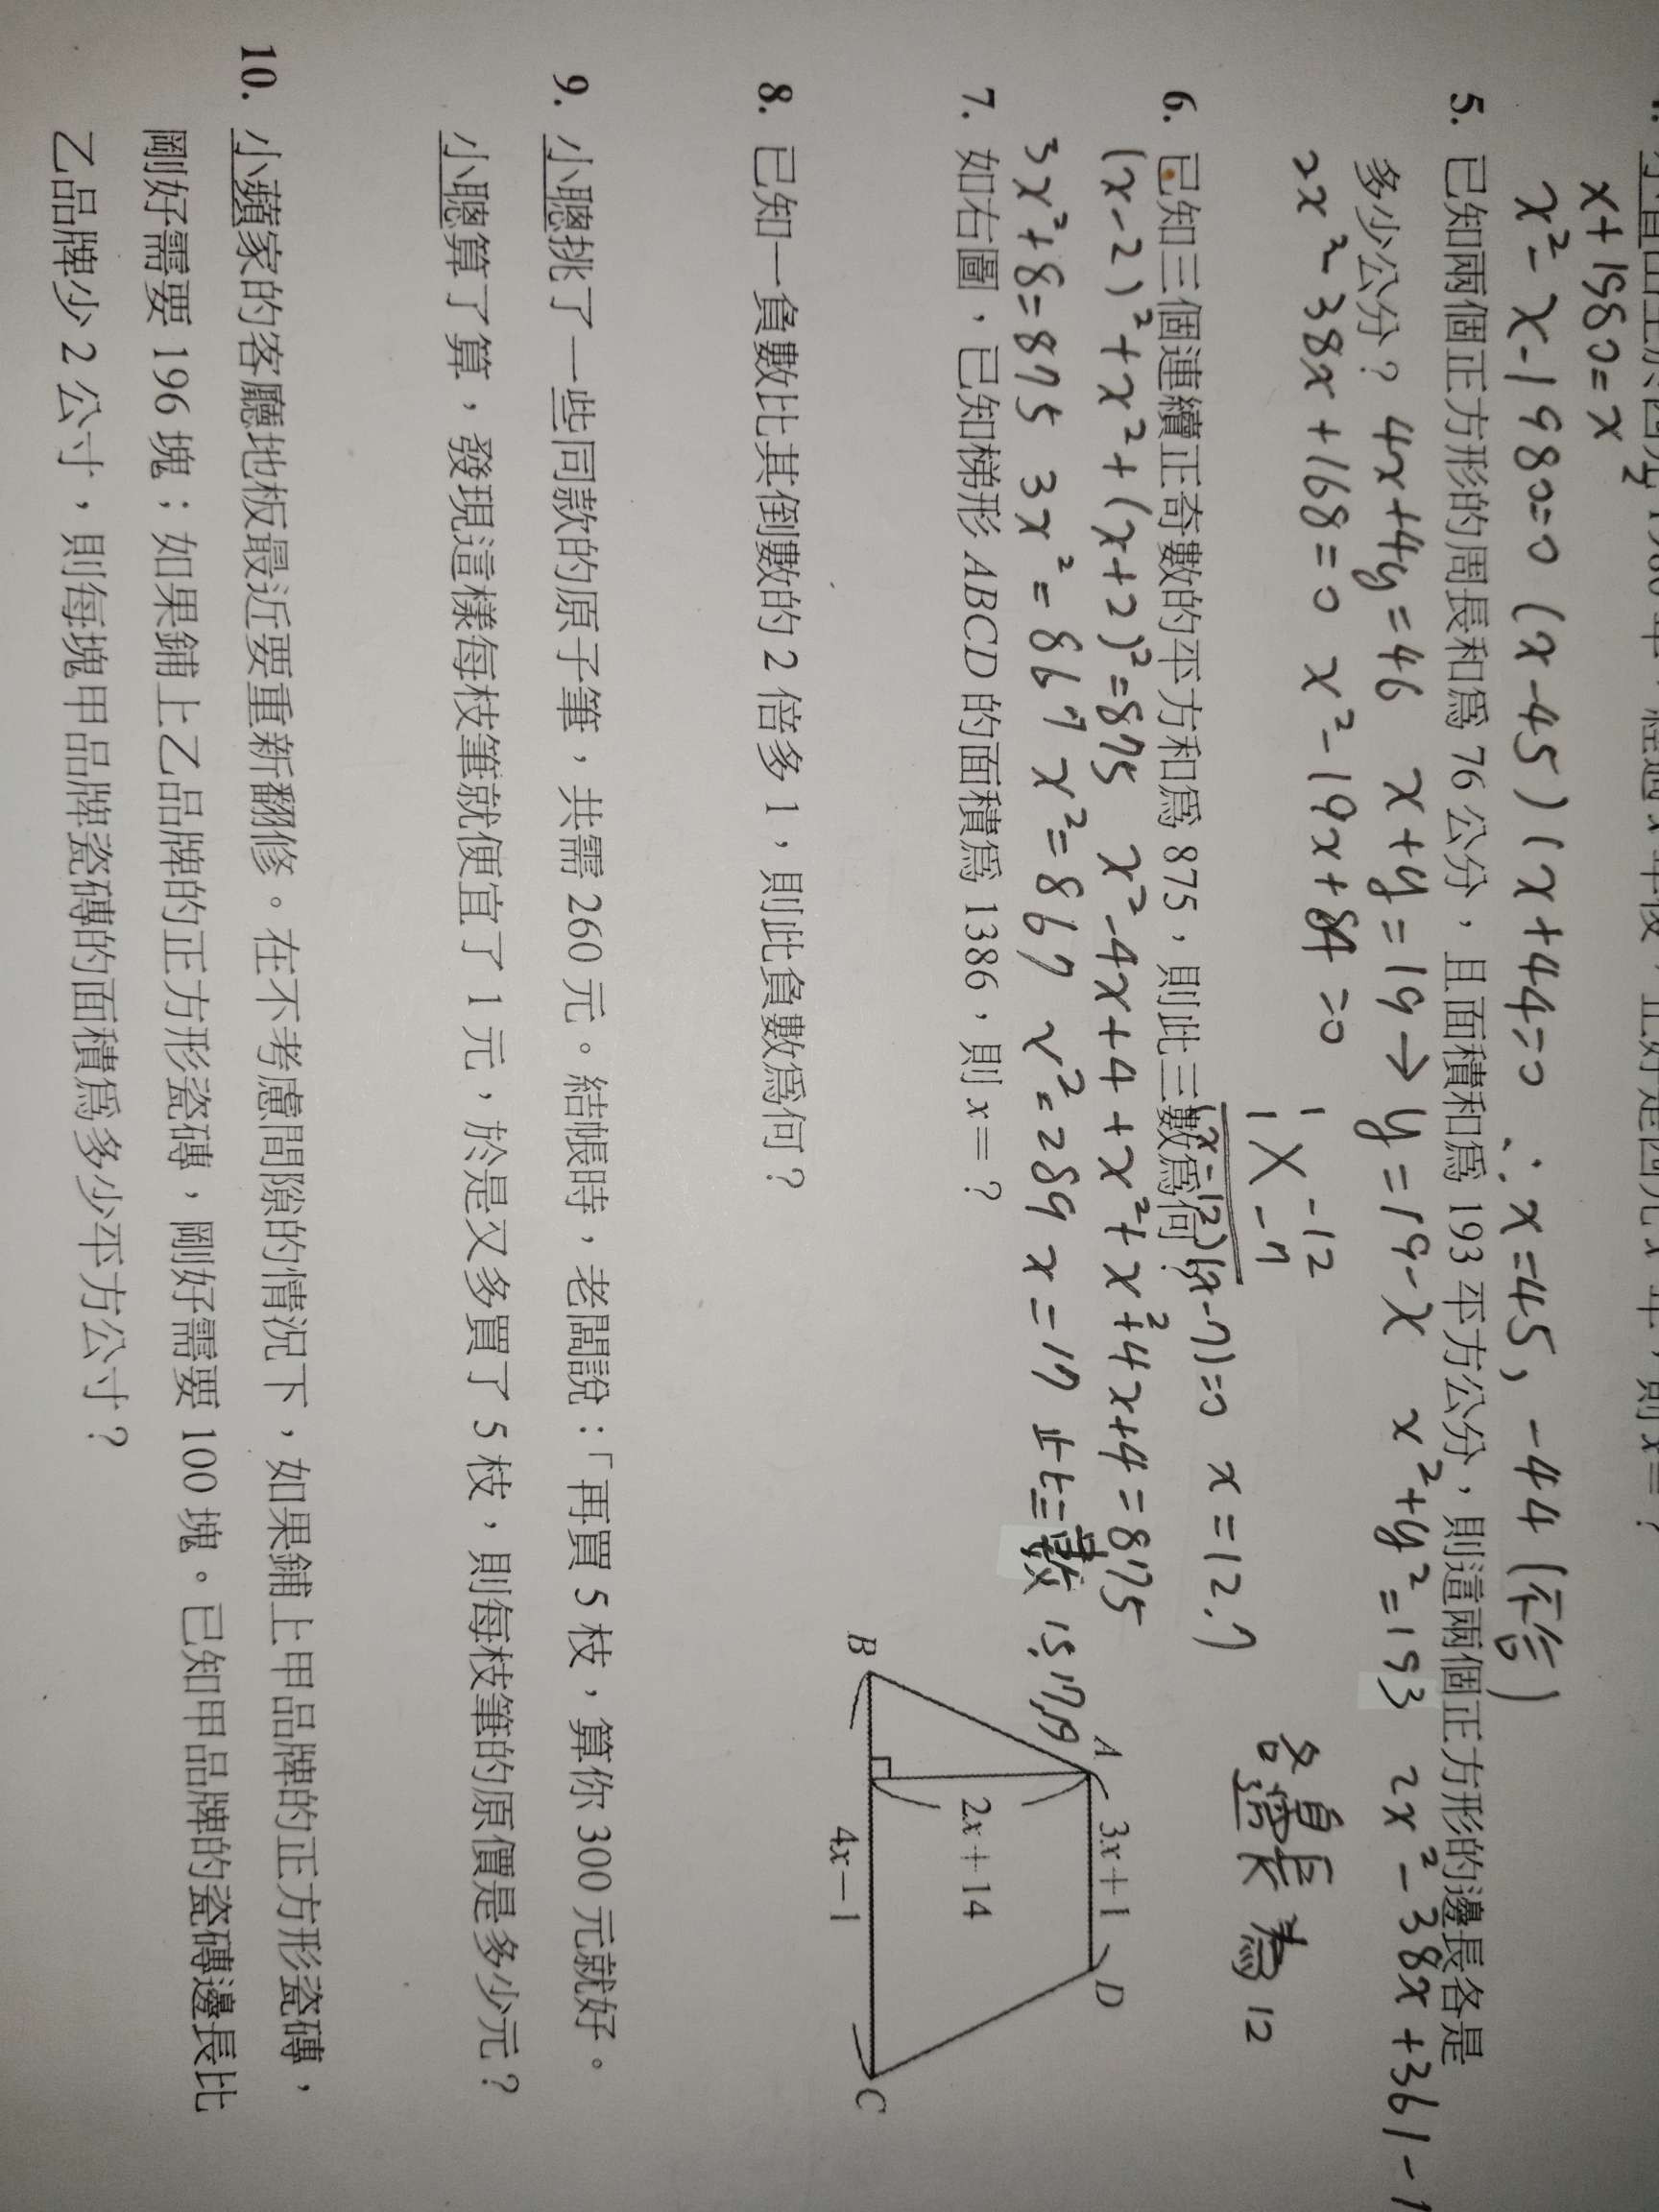 x+1980=x²
x²-x-1980=0 (x-45)(x+44)=0 ∴x=45, -44(不合)
5. 已知兩個正方形的周長和為 76 公分，且面積和為 193 平方公分，則這兩個正方形的邊長各是
多少公分？ 4x+4y=46 x+y=19→y=19-x x²+y²=193 2x²-38x+361-1
2x²-38x+168=0 x²-19x+84=0
1 -12
1 X -7
各邊長為12
(x-12)(x-7)=0 x=12.7
6. 已知三個連續正奇數的平方和為 875，則此三數為何？
(x-2)²+x²+(x+2)²=875 x²-4x+4+x²+x²+4x+4=875
3x²+8=875 3x²=867 x²=867 x²=289 x=17 此三數 15,17,19
7. 如右圖，已知梯形 ABCD 的面積為 1386，則 x=？
A
3x+1
D
2x+14
B
4x-1
C
8. 已知一負數比其倒數的 2 倍多 1，則此負數為何？
9. 小聰挑了一些同款的原子筆，共需 260 元。結帳時，老闆說：「再買 5 枝，算你 300 元就好。
小聰算了算，發現這樣每枝筆就便宜了 1 元，於是又多買了 5 枝，則每枝筆的原價是多少元？
10. 小蘋家的客廳地板最近要重新翻修。在不考慮間隙的情況下，如果鋪上甲品牌的正方形瓷磚，
剛好需要 196 塊；如果鋪上乙品牌的正方形瓷磚，剛好需要 100 塊。已知甲品牌的瓷磚邊長比
乙品牌少 2 公寸，則每塊甲品牌瓷磚的面積為多少平方公寸？